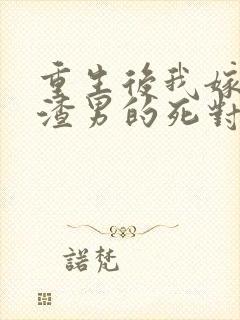 重生後我嫁
渣男的死對
諾梵